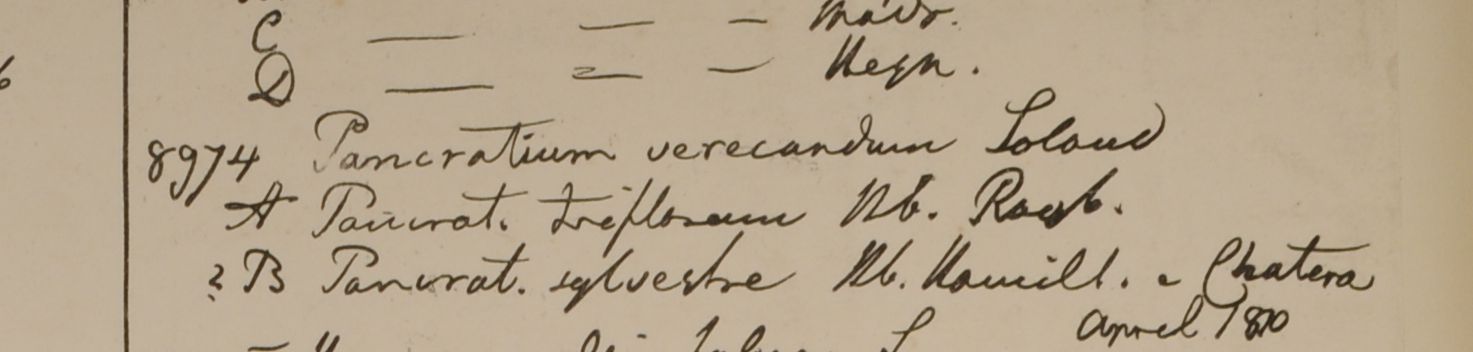 C — — — Madr.
D — — — Heyn.
8974 Pancratium verecundum Soland
A Pancrat. triflorum Hb. Roxb.
? B Pancrat. sylvestre Hb. Hamill. e Chatera
April 1810